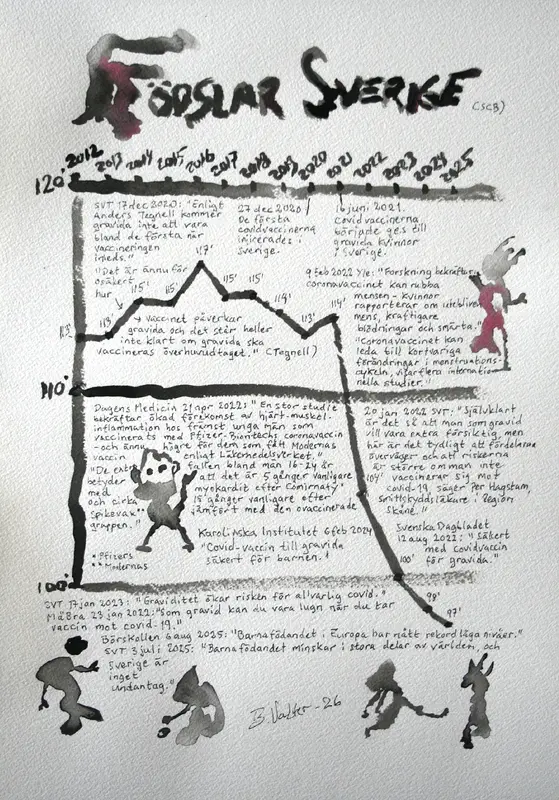 FÖDSLAR SVERIGE (SCB)
2012 2013 2014 2015 2016 2017 2018 2019 2020 2021 2022 2023 2024 2025
120'
SVT 17 dec 2020: "Enligt
Anders Tegnell kommer
gravida inte att vara
bland de första när
vaccineringen
inleds."
"Det är ännu för
osäkert
hur
vaccinet påverkar
gravida och det står heller
inte klart om gravida ska
vaccineras överhuvudtaget." (Tegnell)
27 dec 2020
De första
covidvaccinerna
injicerades i
Sverige.
16 juni 2021.
Covidvaccinerna
började ges till
gravida kvinnor
i Sverige.
113' 115' 115' 117' 115' 115' 114' 113' 114'
9 feb 2022 Yle: "Forskning bekräftar,
coronavaccinet kan rubba
mensen – kvinnor
rapporterar om utebliven
mens, kraftigare
blödningar och smärta."
"Coronavaccinet kan
leda till kortvariga
förändringar i menstruations-
cykeln, visar flera internatio-
nella studier."
110'
Dagens Medicin 21 apr 2022: "En stor studie
bekräftar ökad förekomst av hjärtmuskel-
inflammation hos främst unga män som
vaccinerats med Pfizer-Biontechs coronavaccin
- och ännu högre för dem som fått Modernas
vaccin enligt Läkemedelsverket."
"De extra fallen bland män 16-24 år
betyder att det är 5 gånger vanligare
med myokardit efter Comirnaty*
och cirka 15 gånger vanligare efter
Spikevax** jämfört med den ovaccinerade
gruppen."
*Pfizers
**Modernas
Karolinska Institutet 6 feb 2024
"Covid-vaccin till gravida
säkert för barnen."
20 jan 2022 SVT: "Självklart
är det så att man som gravid
vill vara extra försiktig, men
här är det tydligt att fördelarna
överväger och att riskerna
är större om man inte
vaccinerar sig mot
covid-19, säger Per Hagstam,
smittskyddsläkare i Region
Skåne."
104'
Svenska Dagbladet
12 aug 2022: "Säkert
med covidvaccin
för gravida."
100'
100'
98'
97'
SVT 17 jan 2023: "Graviditet ökar risken för allvarlig covid."
MåBra 23 jan 2022: "Som gravid kan du vara lugn när du tar
vaccin mot covid-19."
Börskollen 6 aug 2025: "Barnafödandet i Europa har nått rekordlåga nivåer."
SVT 3 juli 2025: "Barnafödandet minskar i stora delar av världen, och
Sverige är
inget
undantag."
B. Valter -26